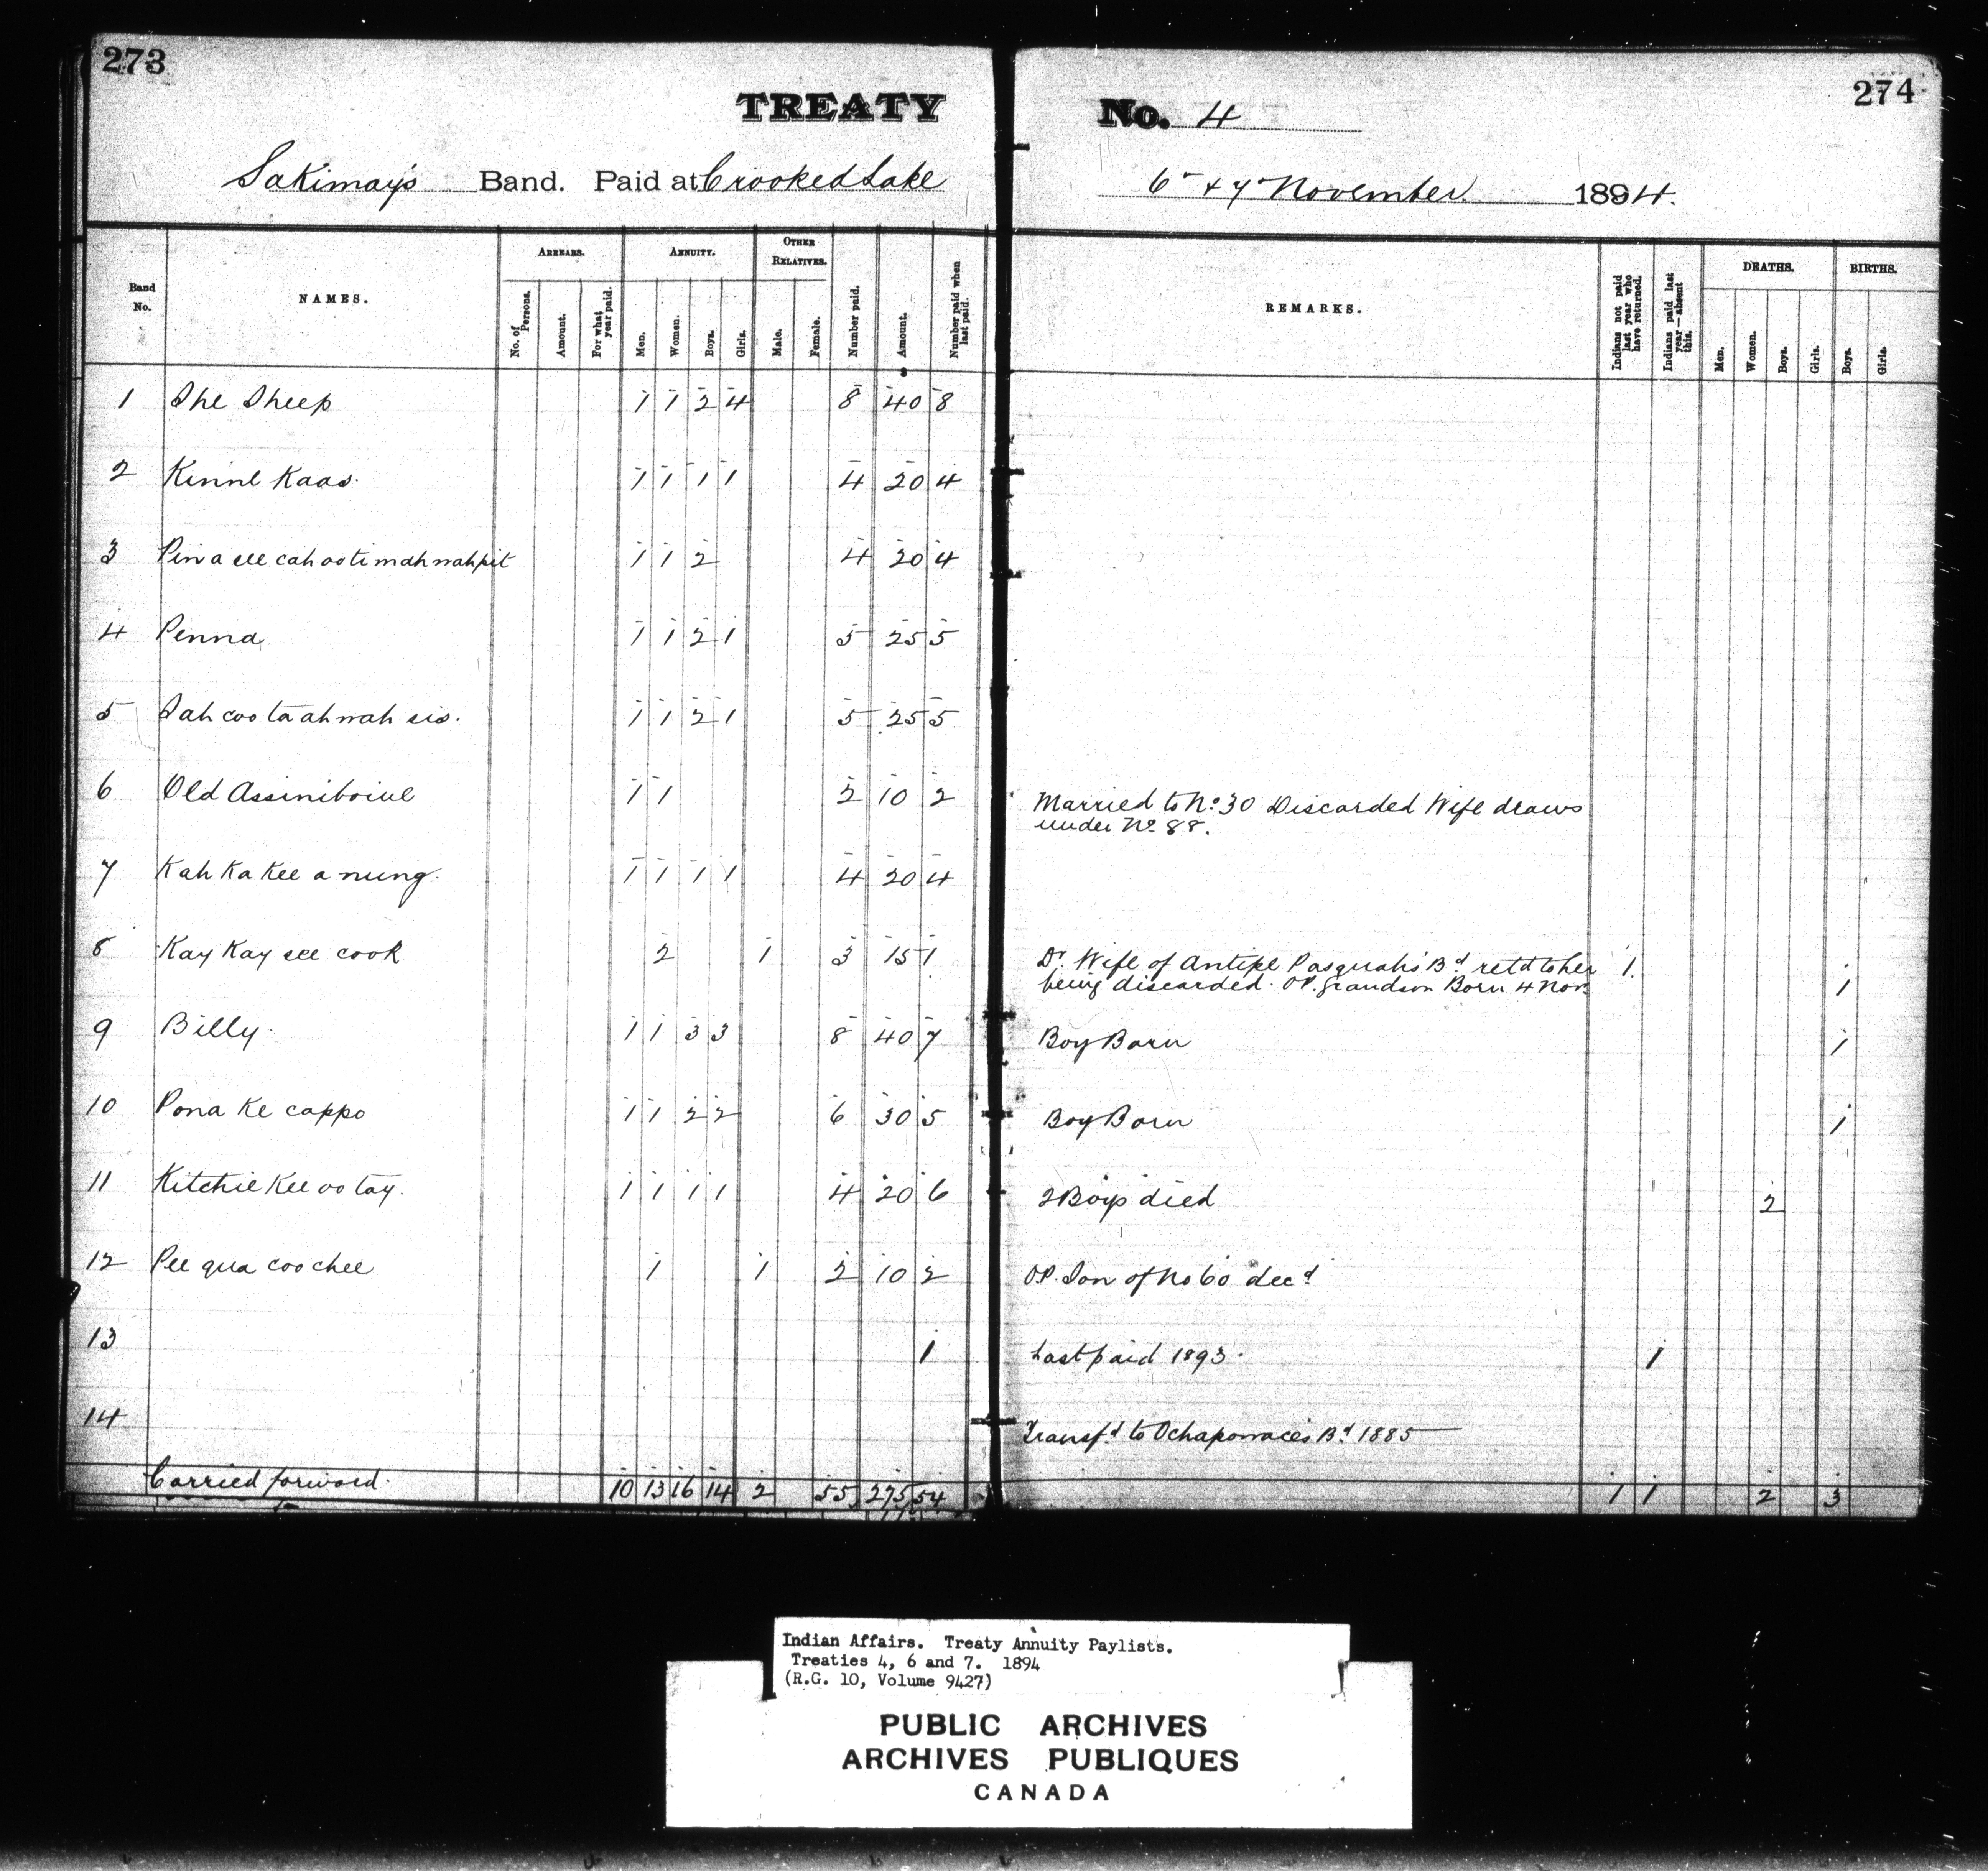 273
274
TREATY No. 4
Sakimay's Band. Paid at Crooked Lake 6th & 7th November 1894.
Band No. NAMES. ARREARS. No. of Persons. Amount. For what year paid. ANNUITY. Men. Women. Boys. Girls. OTHER RELATIVES. Male. Female. Number paid. Amount. Number paid when last paid. REMARKS. Indians not paid last year who have returned. Indians paid last year—absent this. DEATHS. Men. Women. Boys. Girls. BIRTHS. Boys. Girls.
1 She Sheep 1 1 2 4 8 40 8
2 Kinne Kaas. 1 1 1 1 4 20 4
3 Pin a see cah ooti mah nah pit 1 1 2 4 20 4
4 Penna 1 1 2 1 5 25 5
5 Sah coo ta ah nah sis. 1 1 2 1 5 25 5
6 Old Assiniboine 1 1 2 10 2 Married to No. 30 Discarded Wife draws
under No. 88.
7 Kah Ka Kee a nung. 1 1 1 1 4 20 4
8 Kay Kay see cook 2 1 3 15 1 Dr. Wife of Antipe Pasquah's Bd. retd to her 1.
being discarded. OP. grandson Born 4 Nov. 1
9 Billy. 1 1 3 3 8 40 7 Boy Born 1
10 Pona Ke cappo 1 1 2 2 6 30 5 Boy Born 1
11 Kitchie Kee oo tay. 1 1 1 1 4 20 6 2 Boys died 2
12 Pee qua coo chee 1 1 2 10 2 OP. Son of No 60 decd
13 1 Last paid 1893. 1
14 Transfd to Ochapowace's Bd 1885
Carried forward. 10 13 16 14 2 55 275 54 1 1 2 3
Indian Affairs. Treaty Annuity Paylists.
Treaties 4, 6 and 7. 1894
(R.G. 10, Volume 9427)
PUBLIC ARCHIVES
ARCHIVES PUBLIQUES
CANADA